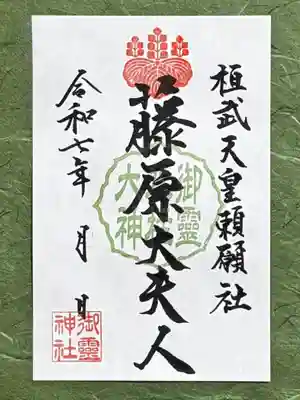 桓武天皇頼願社
藤原大夫人
令和七年 月 日
御靈
大神
御靈
神社